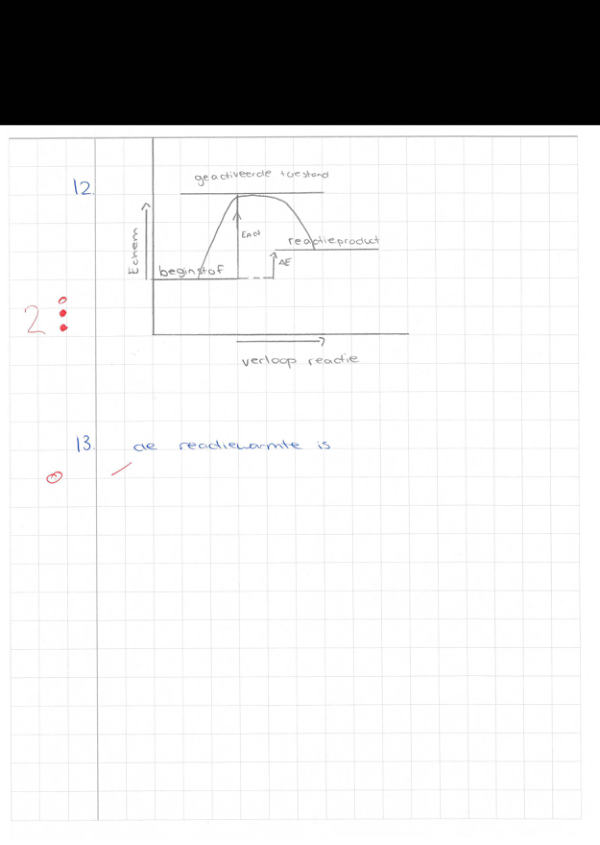 12.
geactiveerde toestand
Echem
Eact
reactieproduct
beginstof
ΔE
2
verloop reactie
13. de reactiewarmte is